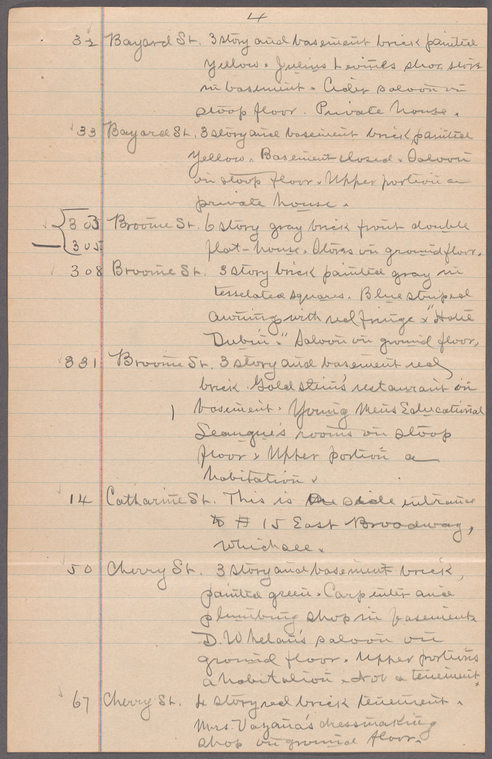 4
32 Bayard St. 3 story and basement brick painted
yellow. Julius Levines shoe store
in basement. Cider saloon on
stoop floor. Private house.
33 Bayard St. 3 story and basement brick painted
yellow. Basement closed. Saloon
on stoop floor. Upper portion a
private house.
303 Broome St. 6 story gray brick front double
305 flat-house. Stores on ground floor.
308 Broome St. 3 story brick painted gray in
tesselated squares. Blue striped
awning with red fringe & "Hotel
Dubin." Saloon on ground floor.
331 Broome St. 3 story and basement red
brick Goldstein's restaurant on
basement. Young Mens Educational
Leangue's rooms on stoop
floor & Upper portion a
habitation.
14 Catharine St. This is the side entrance
to # 15 East Broadway,
which see.
50 Cherry St. 3 story and basement brick,
painted green. Carpenter and
plumbing shop in basement
D. Whelan's saloon on
ground floor. Upper portions
a habitation. Not a tenement.
67 Cherry St. 4 story red brick tenement.
Mrs. Vazana's dressmaking
shop on ground floor.